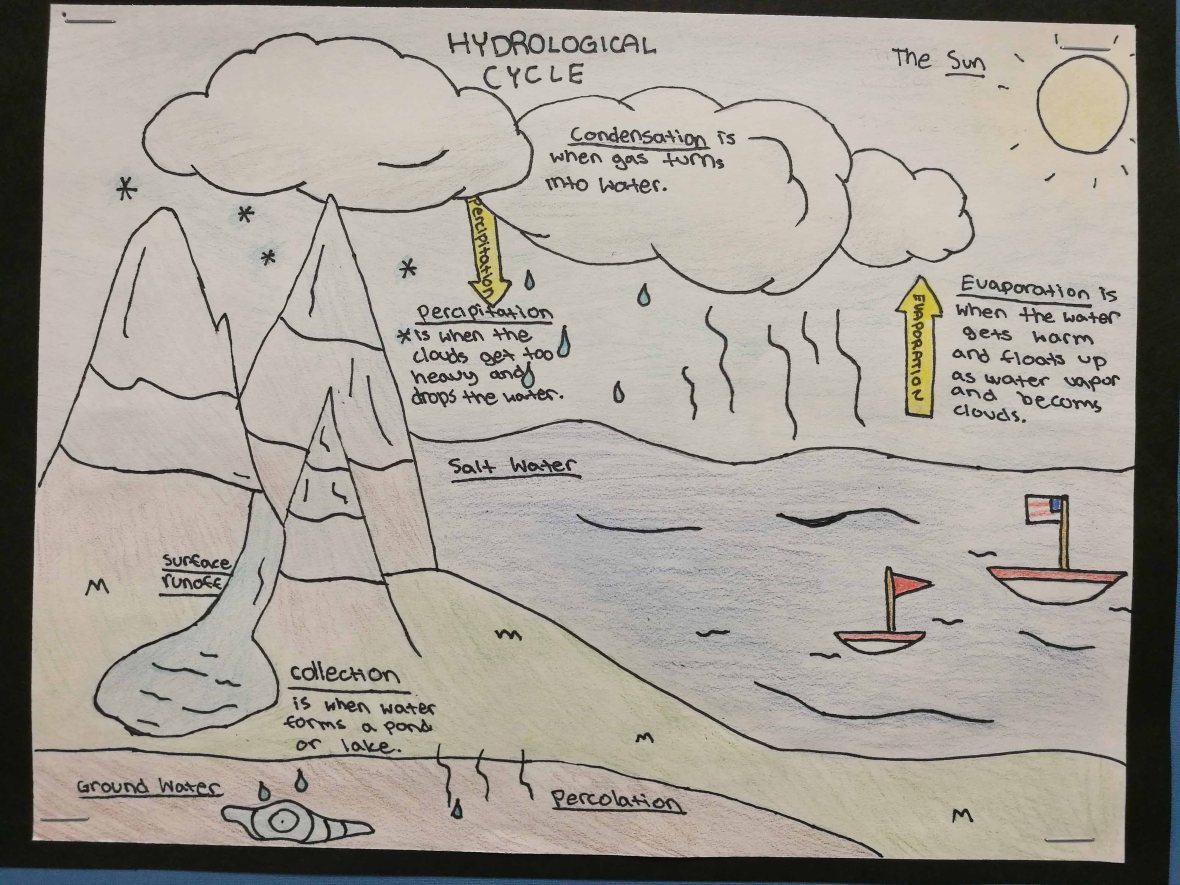 HYDROLOGICAL
CYCLE
The Sun
Condensation is
when gas turns
into water.
Percipitation
Percipitation
*is when the
clouds get too
heavy and
drops the water.
EVAPORATION
Evaporation is
when the water
gets warm
and floats up
as water vapor
and becoms
clouds.
Salt Water
Surface
runoff
Collection
is when water
forms a pond
or lake.
Ground Water
Percolation